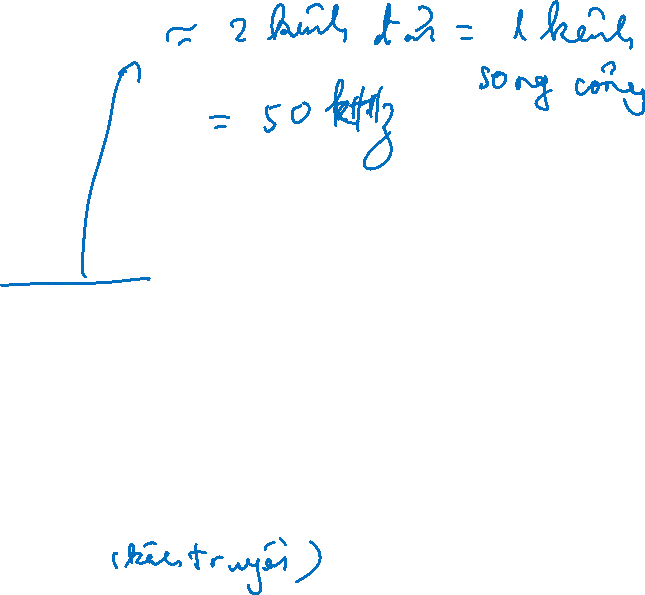 ≈ 2 kênh đơn = 1 kênh
song công
= 50 kHz
(kênh truyền)